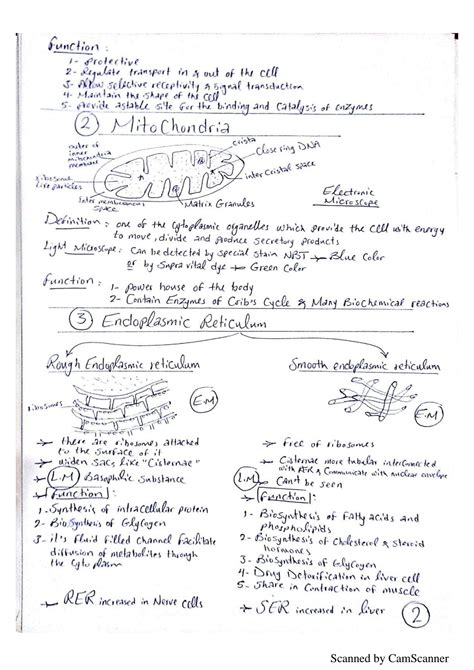 Function :
1- protective
2- Regulate transport in & out of the cell
3- Allow selective receptivity & signal transduction
4- Maintain the shape of the cell
5- provide astable site for the binding and Catalysis of enzymes
2 Mitochondria
outer or
inner
mitochondria
membrane
crista
Close ring DNA
inter Cristal space
ribosomal
like particles
Inter membraneous
space
Matrix Granules
Electronic
Microscope
Definition : one of the cytoplasmic organelles which provide the cell with energy
to move, divide and produce secretory products
Light Microscope : Can be detected by special stain NBT → Blue Color
or by Supra vital dye → Green Color
Function : 1- power house of the body
2- Contain Enzymes of Crib's Cycle & Many Biochemical reactions
3 Endoplasmic Reticulum
Rough Endoplasmic reticulum
ribosomes
E.M
→ there are ribosomes attached
to the surface of it
→ widen sacs like "Cisternae"
→ L.M Basophilic Substance
→ Function :
1. Synthesis of intracellular protein
2- Biosynthesis of Glycogen
3- it's fluid filled channel facilitate
diffusion of metabolites through
the Cytoplasm
→ RER increased in Nerve cells
Smooth endoplasmic reticulum
E.M
→ Free of ribosomes
→ Cisternae more tubular interconnected
with RER & Communicate with nuclear envelope
L.M → Can't be seen
→ Function :
1- Biosynthesis of Fatty acids and
phospholipids
2- Biosynthesis of Cholesterol & Steroid
hormones
3- Biosynthesis of Glycogen
4- Drug Detoxification in liver cell
5- Share in Contraction of muscle
→ SER increased in liver
2
Scanned by CamScanner